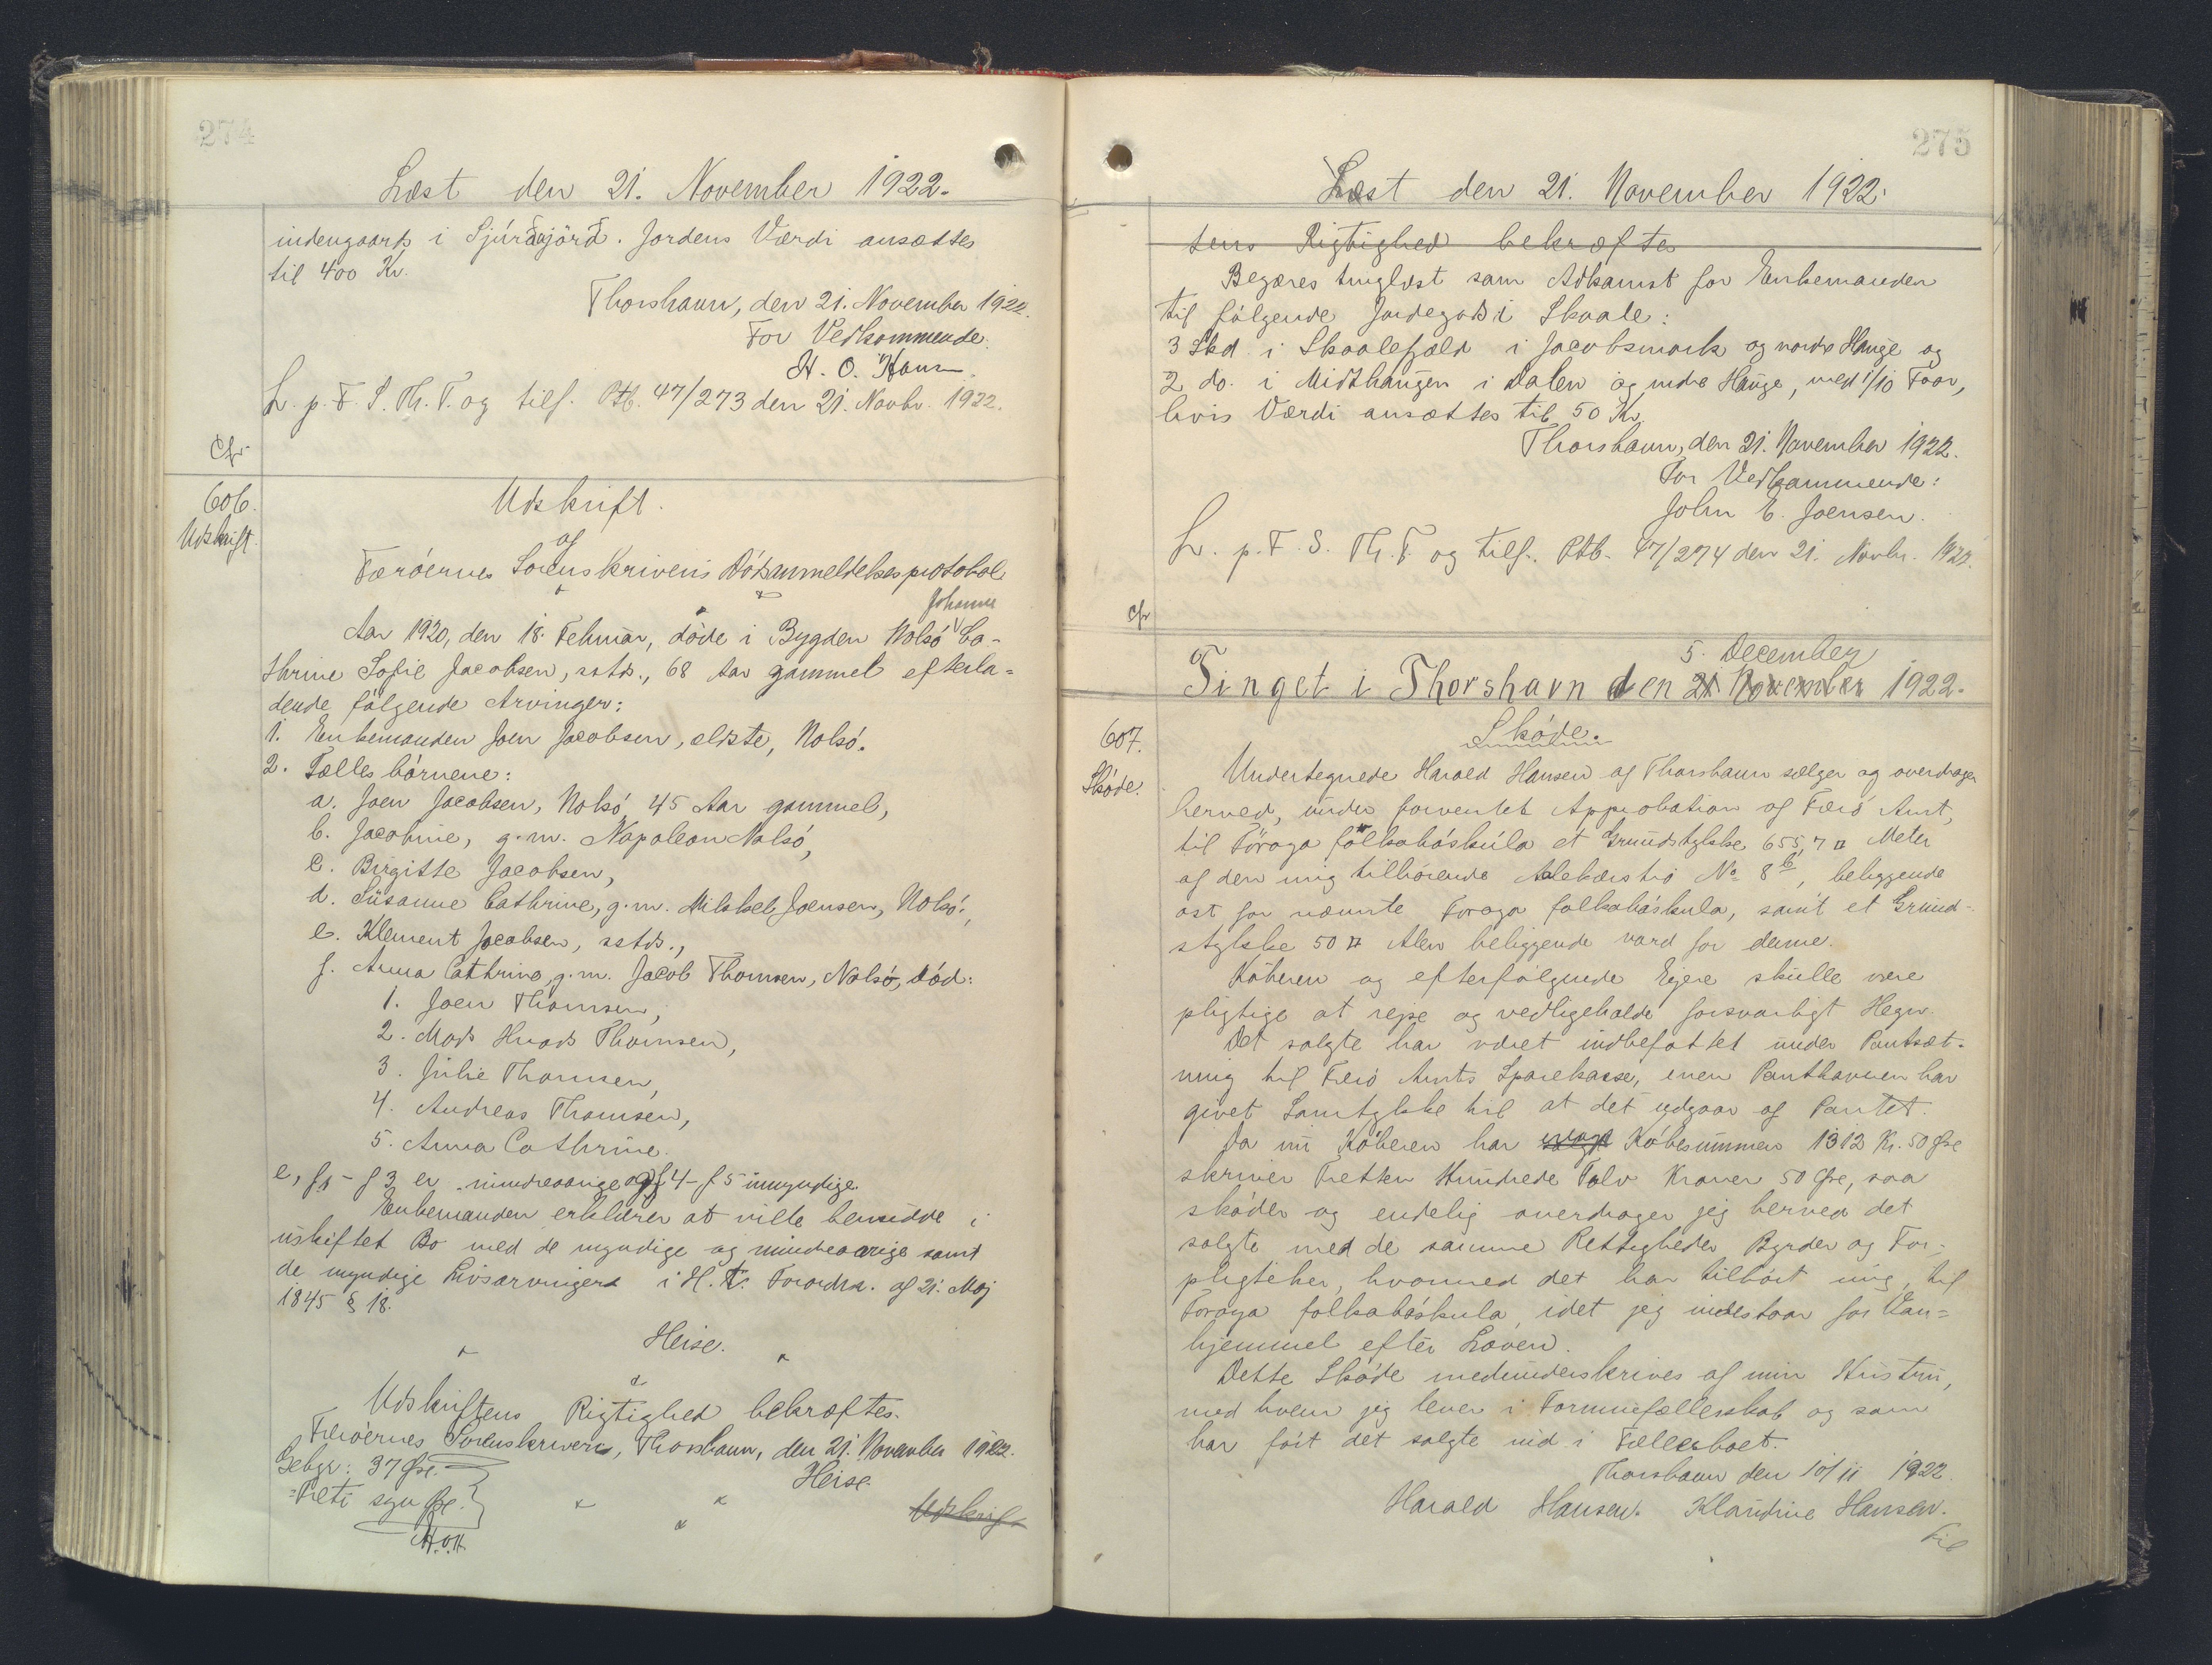 274
Læst den 21. November 1922.
indengaards i Sjúrðajörð. Jordens Værdi ansættes
til 400 Kr.
Thorshavn, den 21. November 1922.
For Vedkommende:
H. O. Hansen.
L. p. F. S. Th. T. og tilf. Ptb. 47/273 den 21. Novbr. 1922.
Cfr.
606.
Udskrift.
Udskrift.
af
Færöernes Sorenskriveris Dödsanmeldelsesprotokol.
Johanne
Aar 1920, den 18. Februar, döde i Bygden Nolsö Ca-
thrine Sofie Jacobsen, sstds., 68 Aar gammel efterla-
dende fölgende Arvinger:
1. Enkemanden Joen Jacobsen, ældste, Nolsö.
2. Fælles börnene:
a. Joen Jacobsen, Nolsö, 45 Aar gammel,
b. Jacobine, g. m. Napoleon Nolsö,
c. Birgitte Jacobsen,
d. Susanne Cathrine, g. m. Mikkel Joensen, Nolsö,
e. Klement Jacobsen, sstds.,
f. Anna Cathrine, g. m. Jacob Thomsen, Nolsö, död:
1. Joen Thomsen,
2. Mads Hans Thomsen,
3. Julie Thomsen,
4. Andreas Thomsen,
5. Anna Cathrine.
e, f1 - f 3 er mindreaarige og f 4 - f 5 umyndige.
Enkemanden erklærer at ville hensidde i
uskiftet Bo med de myndige og mindreaarige samt
de myndige Livsarvingers i H. t. Forordn. af 21. Maj
1845 § 18.
Heise.
Udskriftens Rigtighed bekræftes.
Færöernes Sorenskriveri, Thorshavn, den 21. November 1922.
Heise.
Gebyr: 37 Øre.
Treti syv Øre.
H.O.H.
Udskrif
275
Læst den 21. November 1922.
tens Rigtighed bekræftes
Begæres tinglæst som Adkomst for Enkemanden
til fölgende Jordegods i Skaale:
3 Skd. i Skaalefjæld i Jacobsmark og nordre Hauge og
2 do. i Midthaugen i Dalen og indre Hauge, med 1/10 Faar,
hvis Værdi ansættes til 50 Kr.
Thorshavn, den 21. November 1922.
For Vedkommende:
John C. Joensen.
L. p. F. S. Th. T. og tilf. Ptb. 47/274 den 21. Novbr. 1922.
cfr.
5. December
Tinget i Thorshavn den 21 November 1922.
607.
Sköde.
Sköde.
Undertegnede Harald Hansen af Thorshavn sælger og overdrager
herved, under forventet Approbation af Færö Amt,
til Föroya fólkaháskúla et Grundstykke 655,7 □ Meter
af den mig tilhörende No 8 b, beliggende
öst for nævnte Föroya folkaháskula, samt et Grund-
stykke 50 □ Alen beliggende nord for denne.
Köberen og efterfölgende Ejere skulle være
pligtige at rejse og vedligeholde forsvarligt Hegn.
Det solgte har været indbefattet under Pantsæt-
ning til Færö Amts Sparekasse, men Panthaveren har
givet Samtykke til at det udgaar af Pantet.
Da nu Köberen har Köbesummen 1312 Kr. 50 Øre
skriver Tretten Hundrede Tolv Kroner 50 Øre, saa
sköder og endelig overdrager jeg herved det
solgte med de samme Rettigheder Byrder og For-
pligtelser, hvormed det har tilhört mig, til
Föroya folkaháskula, idet jeg indestaar for Van-
hjemmel efter Loven.
Dette Sköde medunderskrives af min Hustru,
med hvem jeg lever i Formuefællesskab og som
har fört det solgte ind i Fællesboet.
Thorshavn den 10/11 1922.
Harald Hansen. Klaudine Hansen.
Til